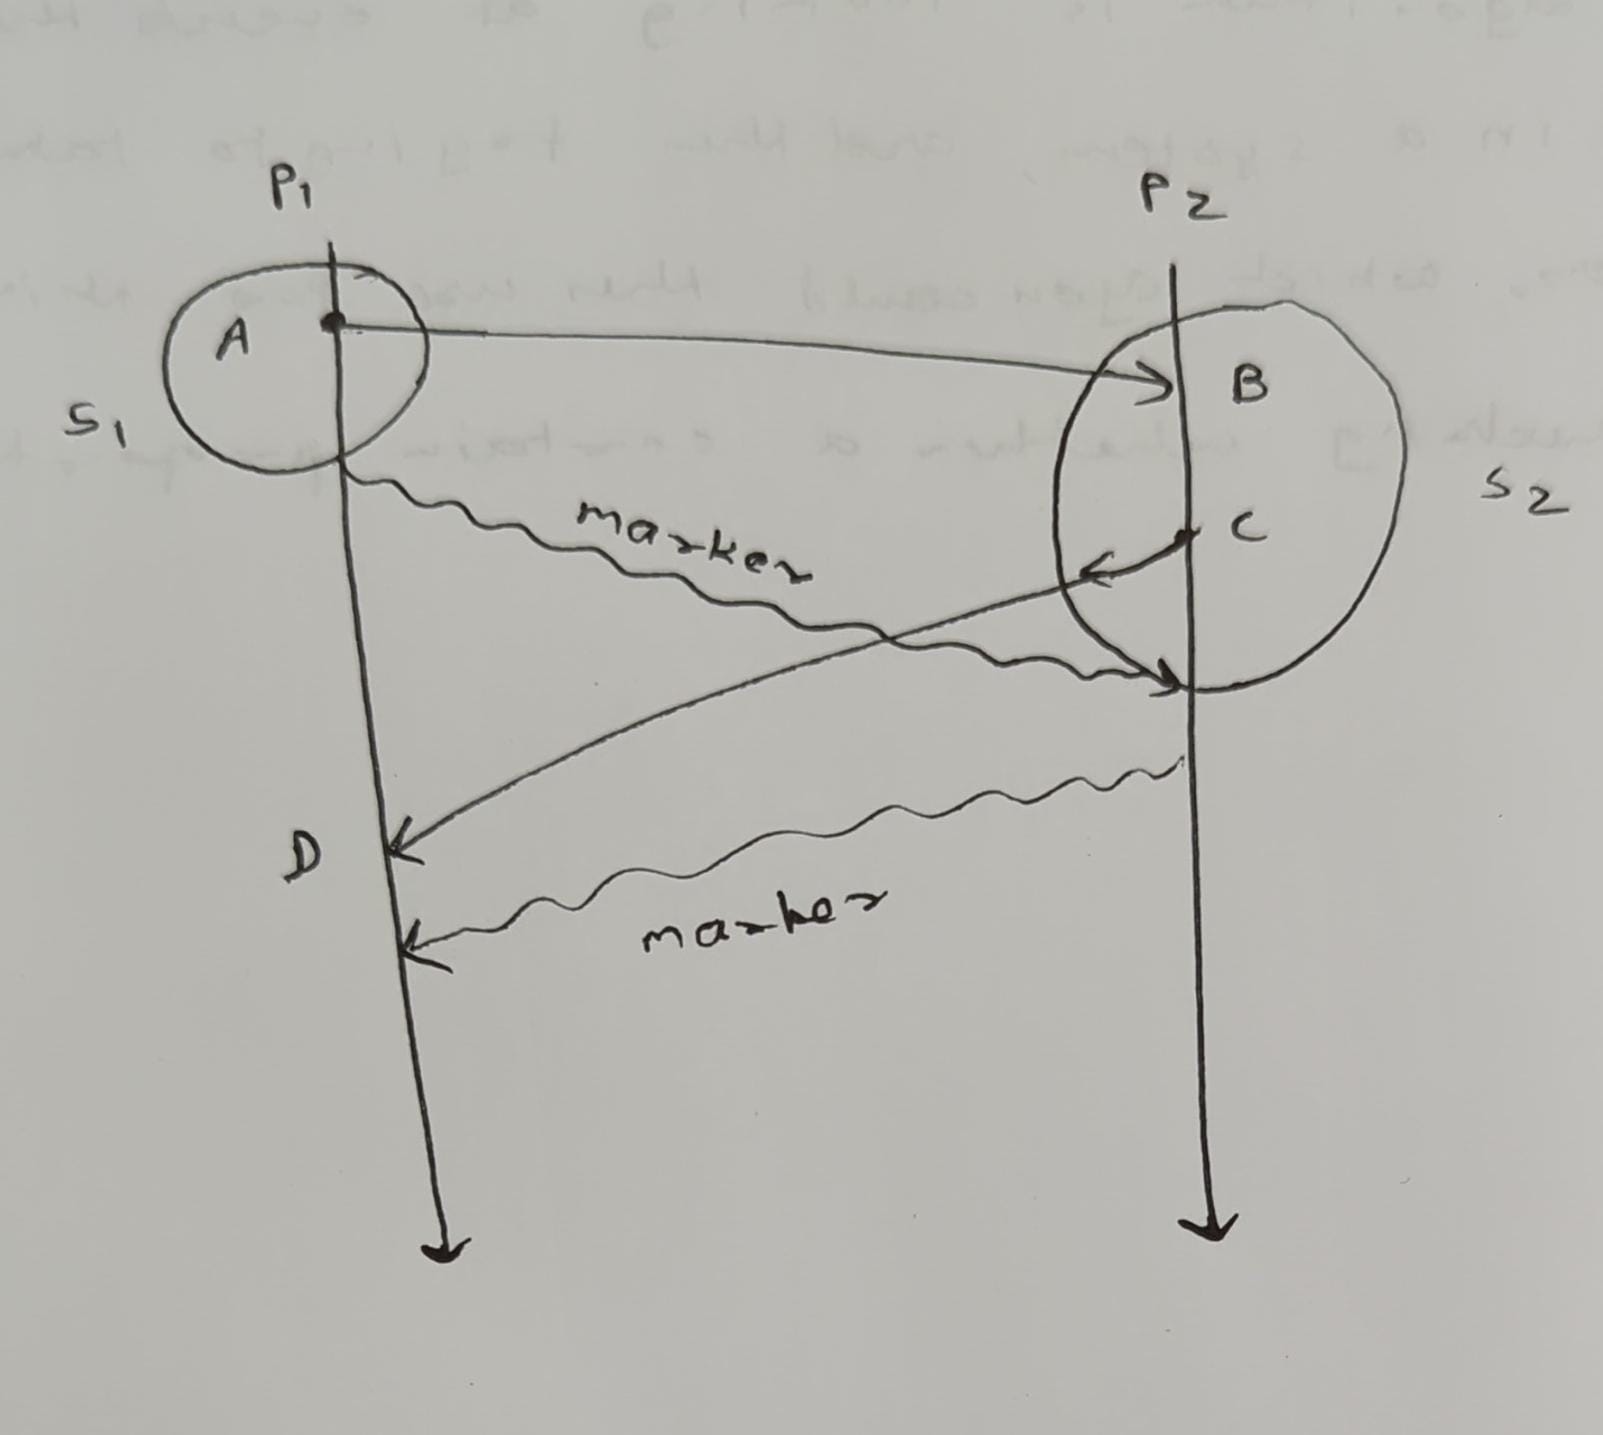 P1 P2
A
B
S1
S2
marker
C
D
marker